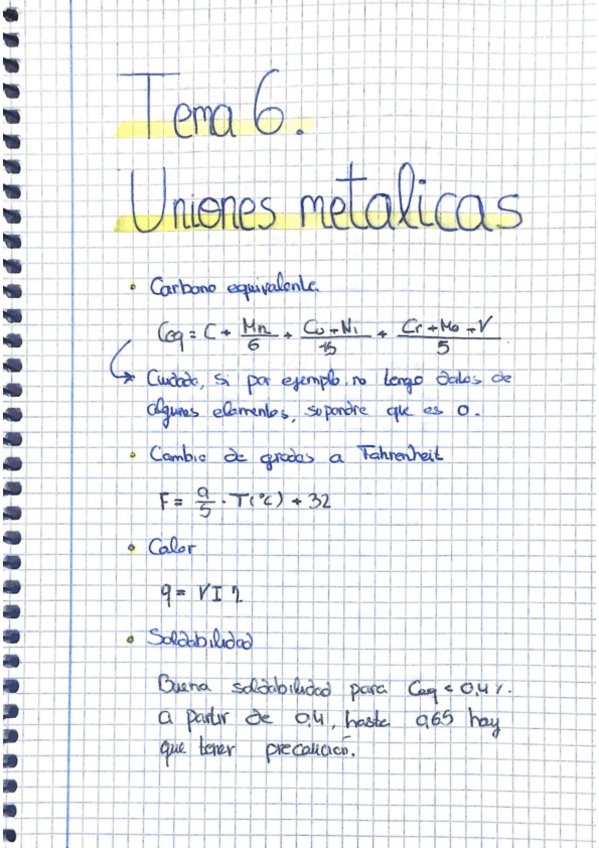 Tema 6.
Uniones metalicas
• Carbono equivalente.
Ceq = C + Mn/6 + Cu+Ni/15 + Cr+Mo+V/5
↳ Cuidado, si por ejemplo no tengo datos de
algunos elementos, supondre que es 0.
• Cambio de grados a Fahrenheit
F = 9/5 · T(ºC) + 32
• Calor
q = V I η
• Soldabilidad
Buena soldabilidad para Ceq < 0,4 %.
a partir de 0,4, hasta 0,65 hay
que tener precaució.